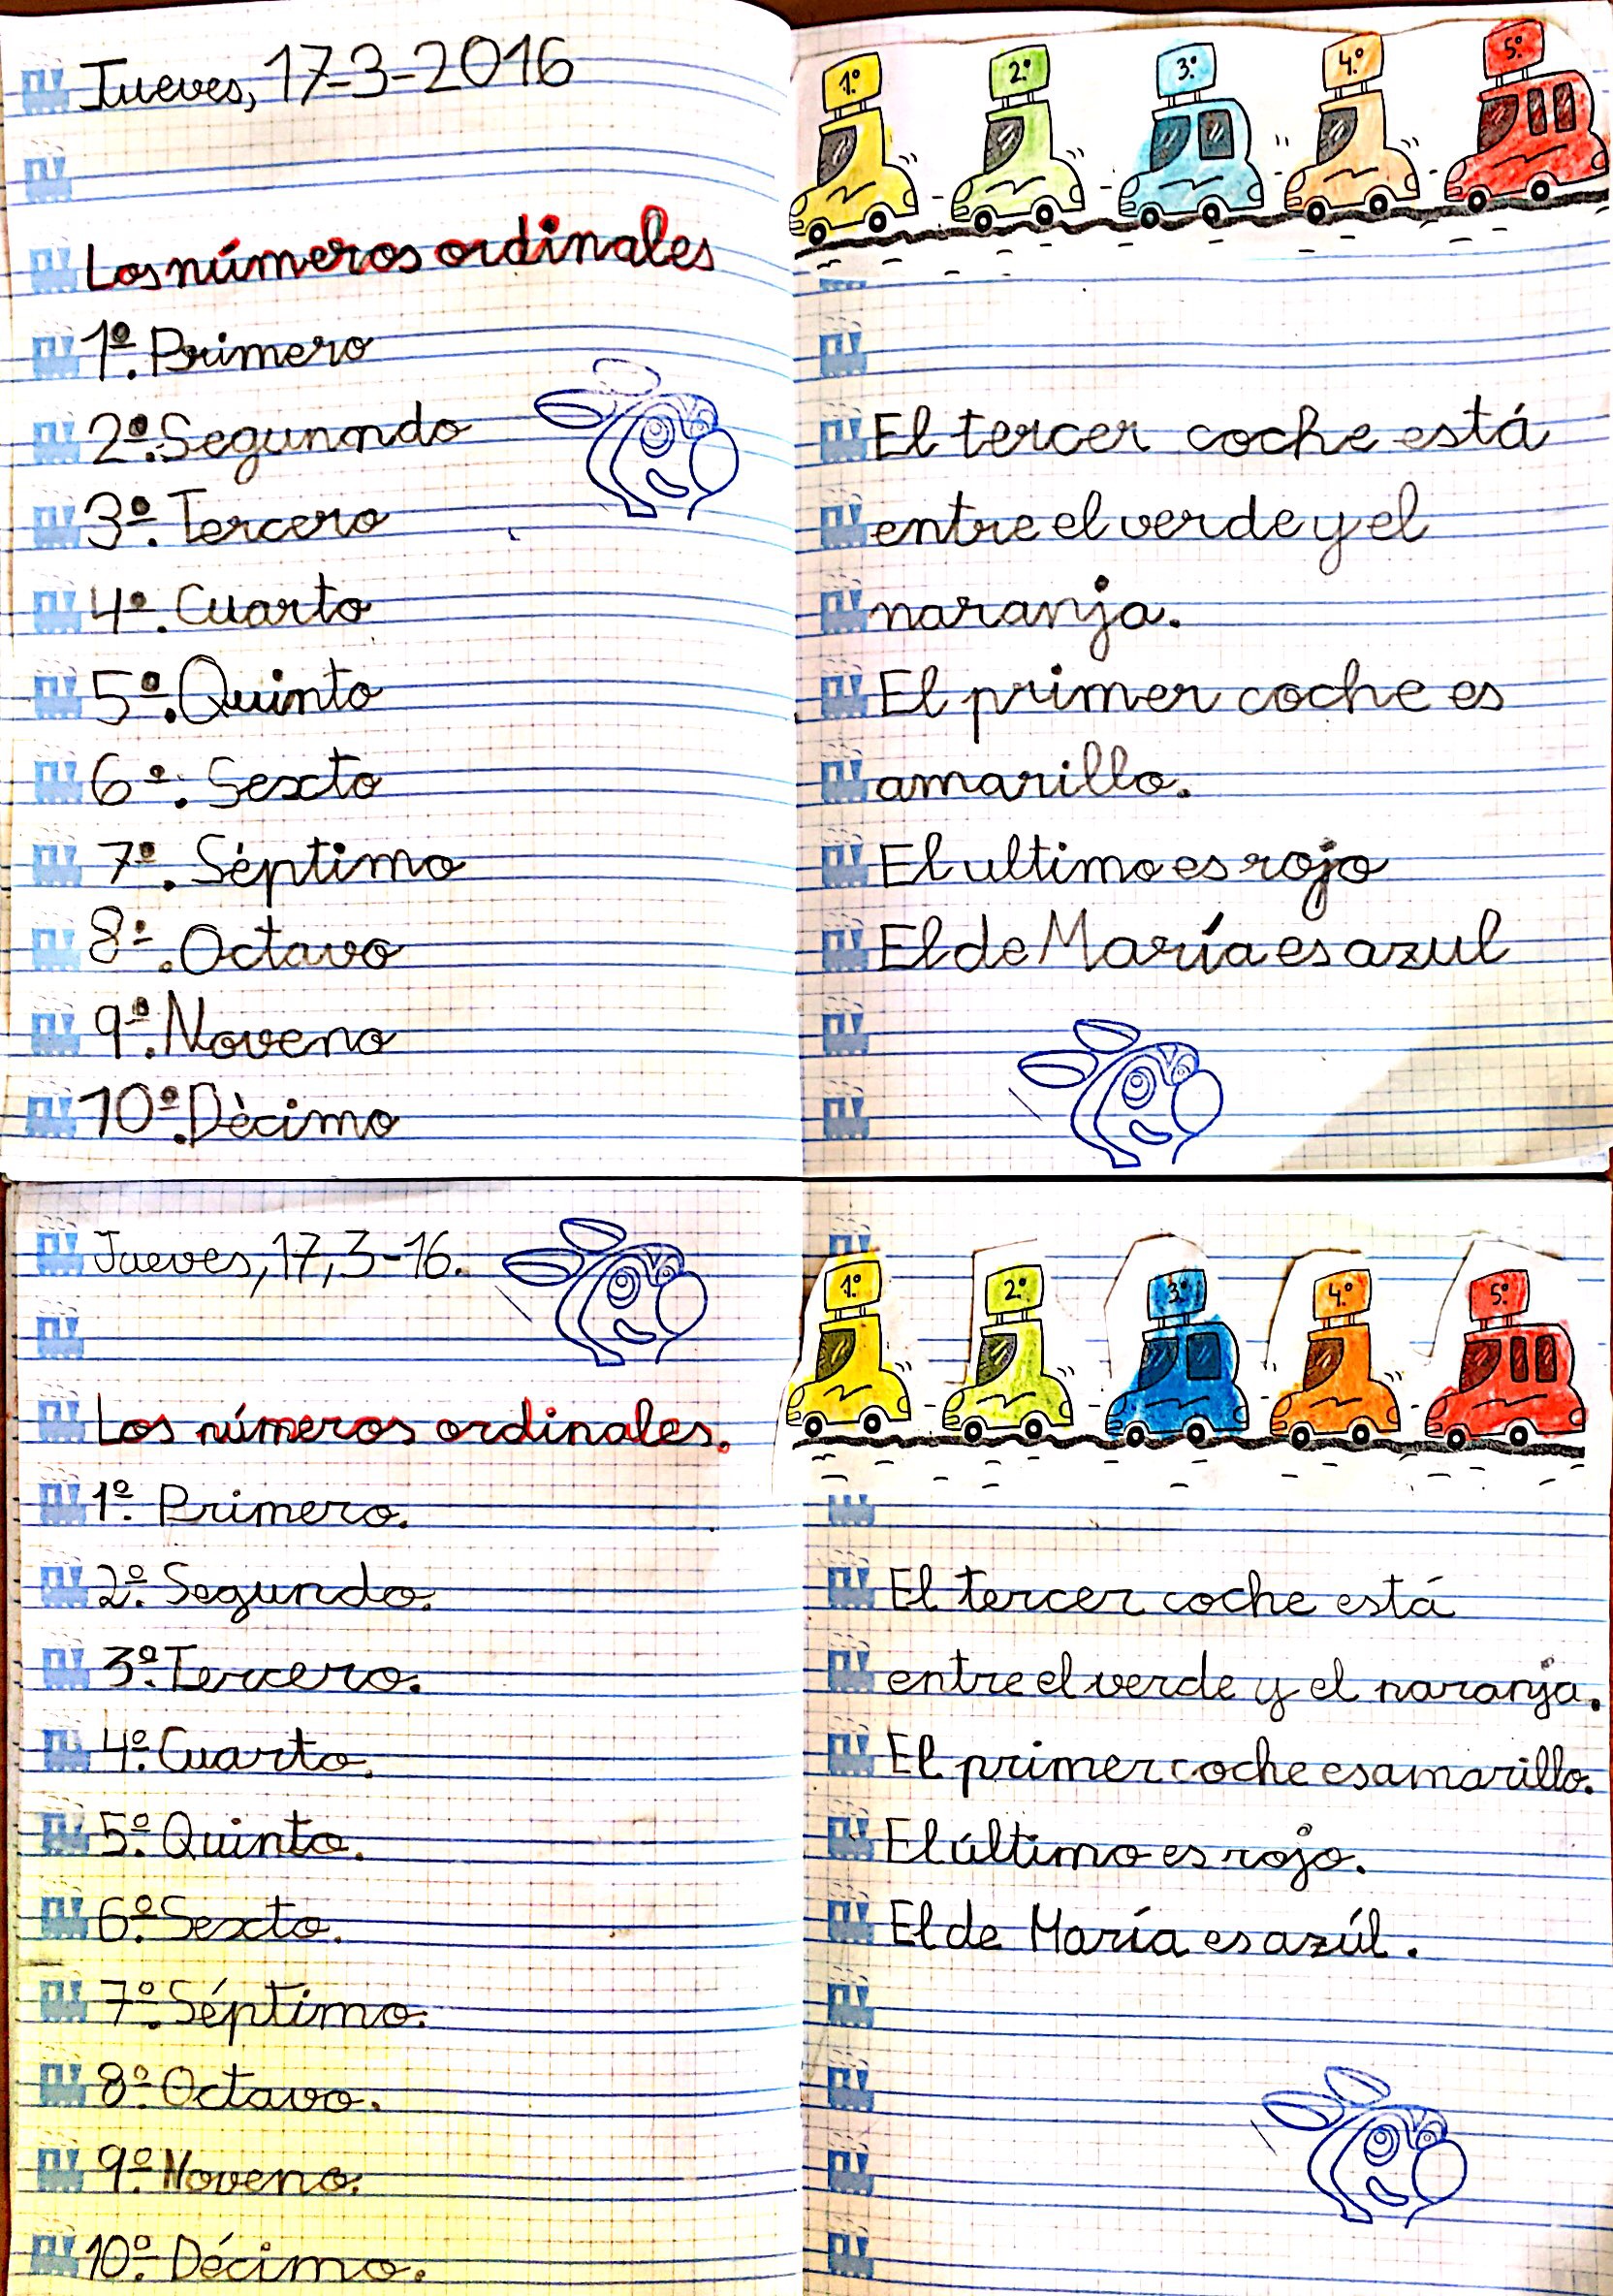 Jueves, 17-3-2016
Los números ordinales
1º. Primero
2º. Segunndo
3º. Tercero
4º. Cuarto
5º. Quinto
6º. Sexto
7º. Séptimo
8º. Octavo
9º. Noveno
10º. Dècimo
1.º 2.º 3.º 4.º 5.º
El tercer coche está
entre el verde y el
naranja.
El primer coche es
amarillo.
El ultimo es rojo
El de María es azul
Jueves, 17, 3-16.
Los números ordinales.
1º. Primero.
2º. Segundo.
3º. Tercero.
4º. Cuarto.
5º. Quinto.
6º. Sexto.
7º. Séptimo.
8º. Octavo.
9º. Noveno.
10º. Décimo.
1.º 2.º 3.º 4.º 5.º
El tercer coche está
entre el verde y el naranja.
El primer coche es amarillo.
El último es rojo.
El de María es azúl.